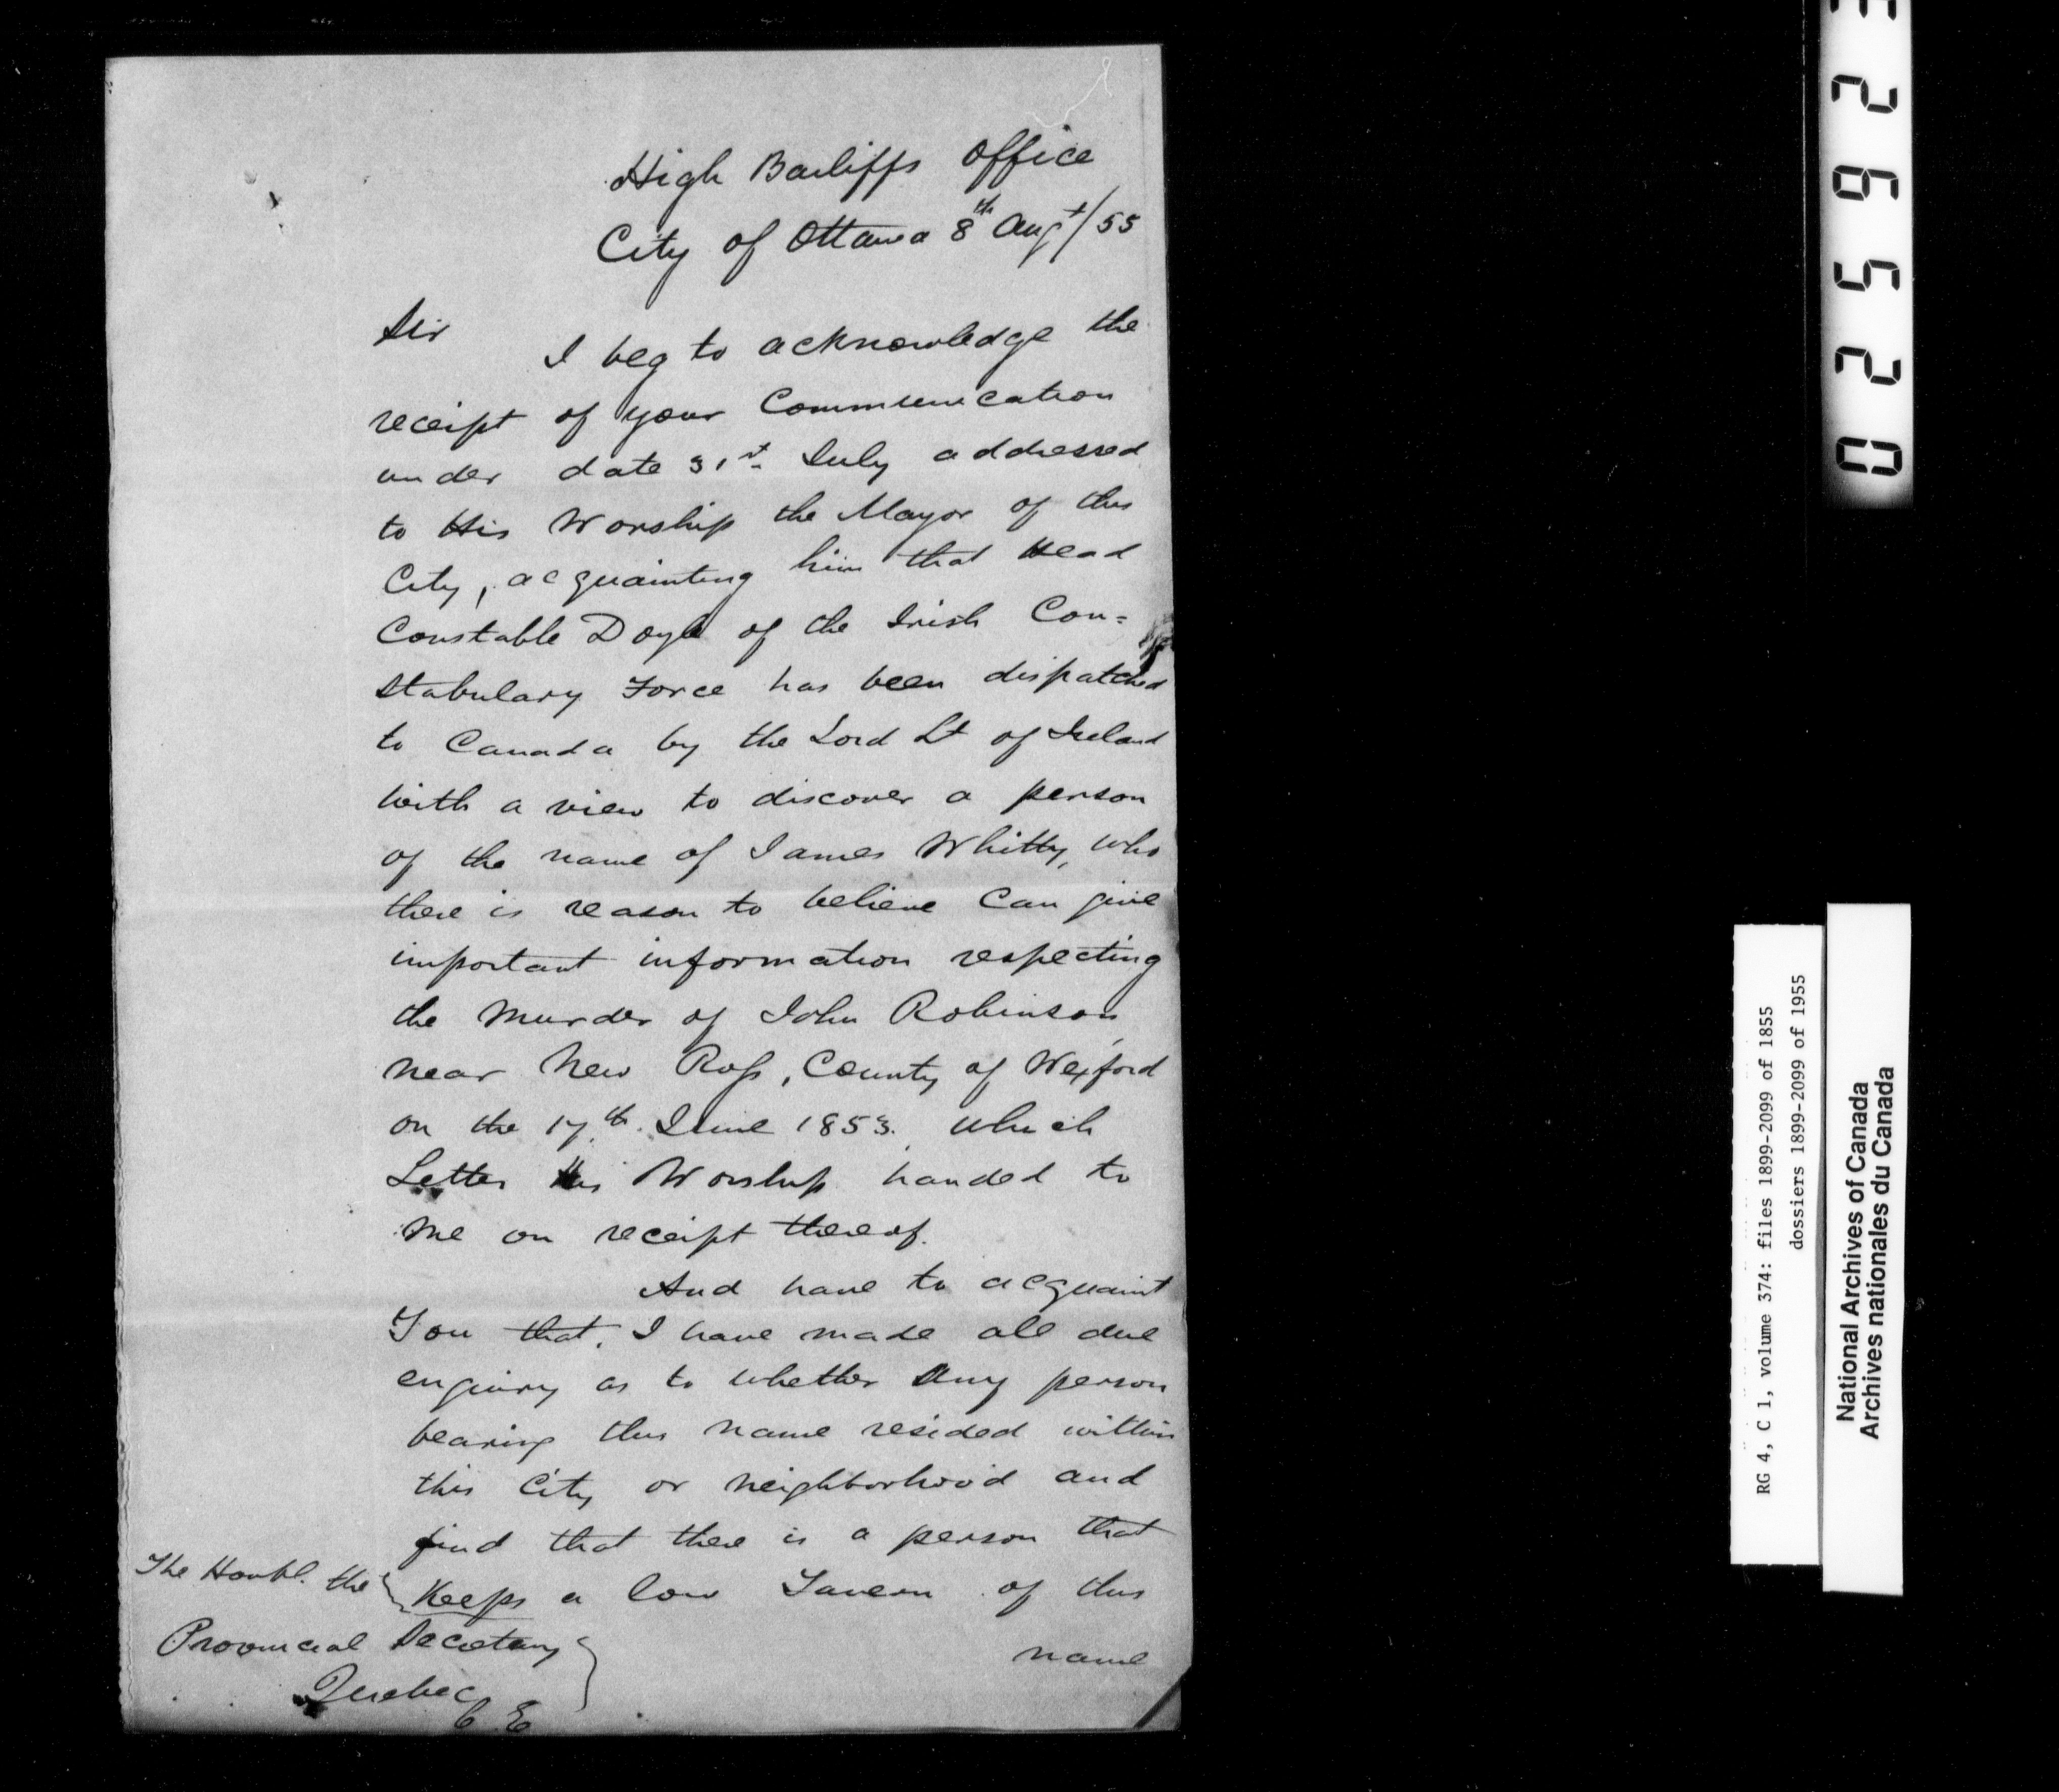 High Bailiffs Office
City of Ottawa 8th Augt/55
Sir
I beg to acknowledge the
receipt of your Communication
under date 31st July addressed
to His Worship the Mayor of this
City, acquainting him that Head
Constable Doyle of the Irish Con=
stabulary Force has been dispatched
to Canada by the Lord Lt of Ireland
with a view to discover a person
of the name of James Whitty, who
there is reason to believe Can give
important information respecting
the Murder of John Robinson,
near New Ross, County of Wexford
on the 17th June 1853. which
Letter His Worship handed to
Me on receipt thereof.
And have to acquaint
You that, I have made all due
enquiry as to whether Any person
bearing this name resided within
this City or neighborhood and
find that there is a person that
Keeps a low Tavern of this
name
The Honbl. the
Provincial Secretary
Quebec
C E
025923
RG 4, C 1, volume 374: files 1899-2099 of 1855
dossiers 1899-2099 of 1955
National Archives of Canada
Archives nationales du Canada